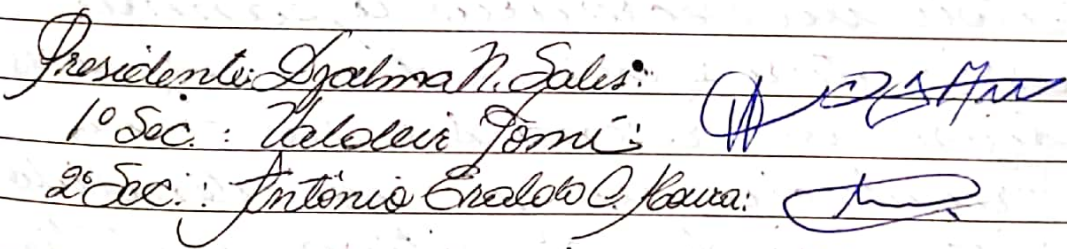 Presidente: Djalma N. Sales:
1º Sec.: Valdeir Tomé:
2º Sec.: Antônio Eraldo C.